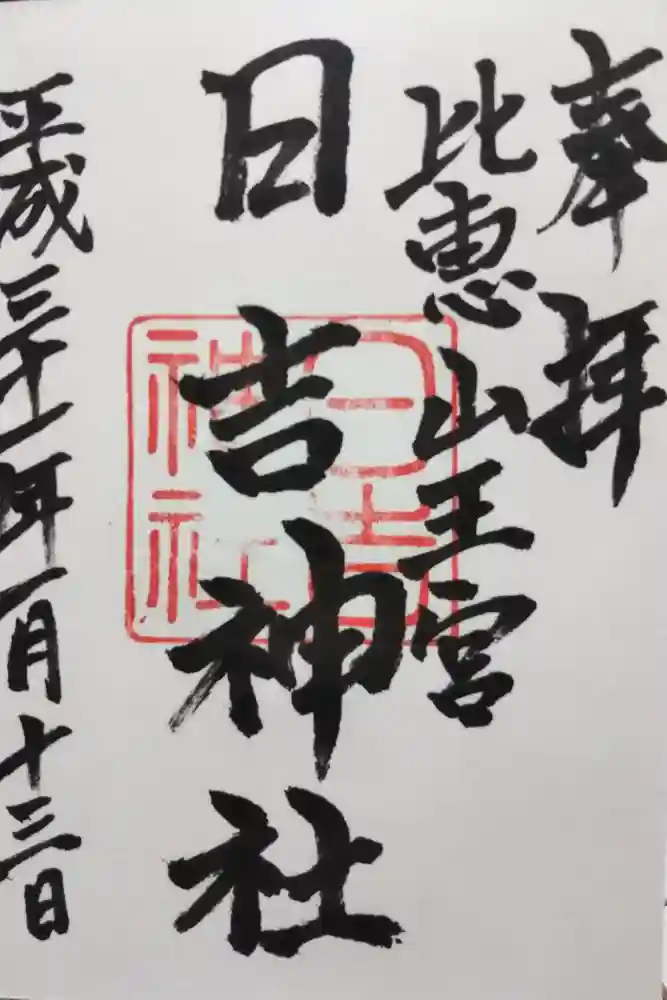 奉拝
比恵山王宮
日吉神社
日吉神社
平成三十一年一月十三日